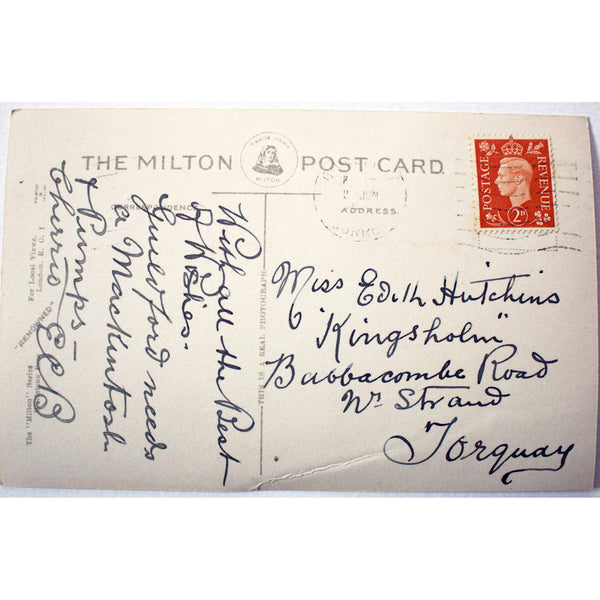 THE MILTON POST CARD
TRADE MARK
MILTON
CORRESPONDENCE
ADDRESS
JUN
POSTAGE
REVENUE
2D
With all the Best
of Wishes.
Guildford needs
a Mackintosh
& Pumps –
Cheerio ECB
Miss Edith Hutchins
"Kingsholm"
Babbacombe Road
Nr Strand
Torquay
THIS IS A REAL PHOTOGRAPH
The "Milton" Series
"RENOWNED"
For Local Views,
London, E.C.1